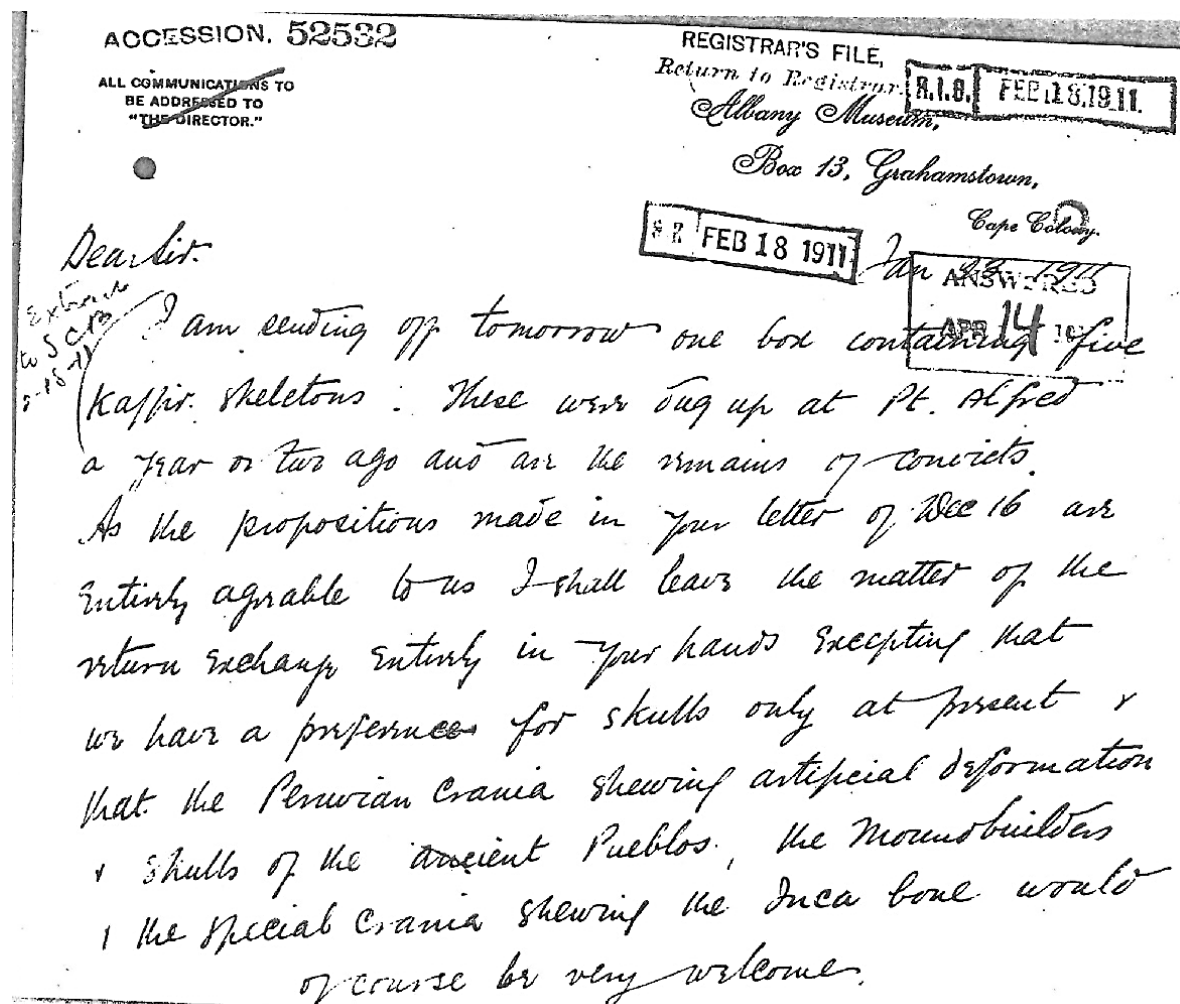 ACCESSION. 52532
ALL COMMUNICATIONS TO
BE ADDRESSED TO
"THE DIRECTOR."
REGISTRAR'S FILE,
Return to Registrar.
R.I.B. FEB 18.1911.
Albany Museum,
Box 13, Grahamstown,
Cape Colony.
FEB 18 1911
Jan 1911
ANSWERED
APR 14
Dear Sir.
Extract
to S C B
I am sending off tomorrow one box containing five
Kaffir. Skeletons. These were dug up at Pt. Alfred
a year or two ago and are the remains of convicts.
As the propositions made in your letter of Dec 16 are
Entirely agreable to us I shall leave the matter of the
return Exchange Entirely in your hands Excepting that
we have a preference for skulls only at present &
that the Peruvian Crania shewing artificial deformation
& Skulls of the ancient Pueblos, the Moundbuilders
& the special Crania shewing the Inca bone would
of course be very welcome.